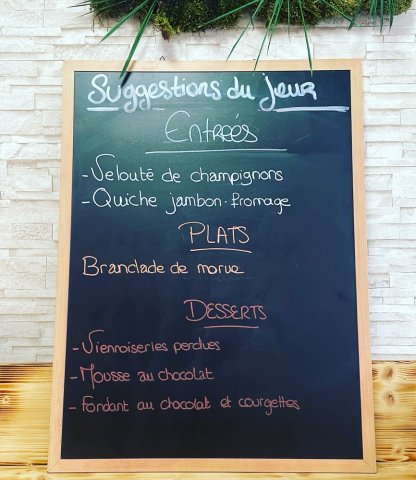 Suggestions du jour
Entrées
- Velouté de champignons
- Quiche jambon-fromage
PLATS
Branclade de morue
DESSERTS
- Viennoiseries perdues
- Mousse au chocolat
- Fondant au chocolat et courgettes